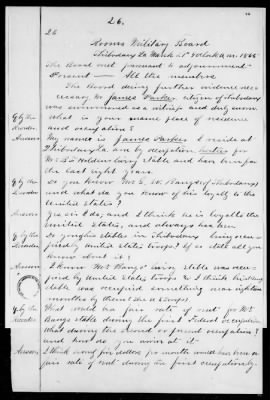 26.
26
Rooms Military Board
Thibodaux La March 25th 9 o'clock a.m. 1865
The Board met pursuant to adjournment
Present — All the members
The Board deeming further evidence nec-
essary Mr James Parker citizen of Thibodaux
was summoned as a witness and duly sworn
Q by the Recorder
What is your name place of residence
and occupation?
Answer
My name is James Parker I reside at
Thibodaux La and by occupation
Mr livery stable and have been for
the last eight years.
Q by the Recorder
Do you know Mr Bangs of Thibodaux
and what do you know of his loyalty to the
United States?
Answer
Yes sir I do, and I think he is loyal to the
United States, and always has been
Q by the Recorder
stables in Thibodaux being occu-
pied by United States troops? If so state all you
know about it
Answer
I know Mr Bangs' livery stable was occu-
pied by United States troops & I think his
stable was occupied something near eighteen
months by them
Q by the Recorder
What would be a fair rate of rent for Mr
Bangs stable during the first Federal occupation
What during the second or present occupation?
and how do you arrive at it
Answer
I think forty five dollars per month would have been a
fair rate of rent during the first occupation